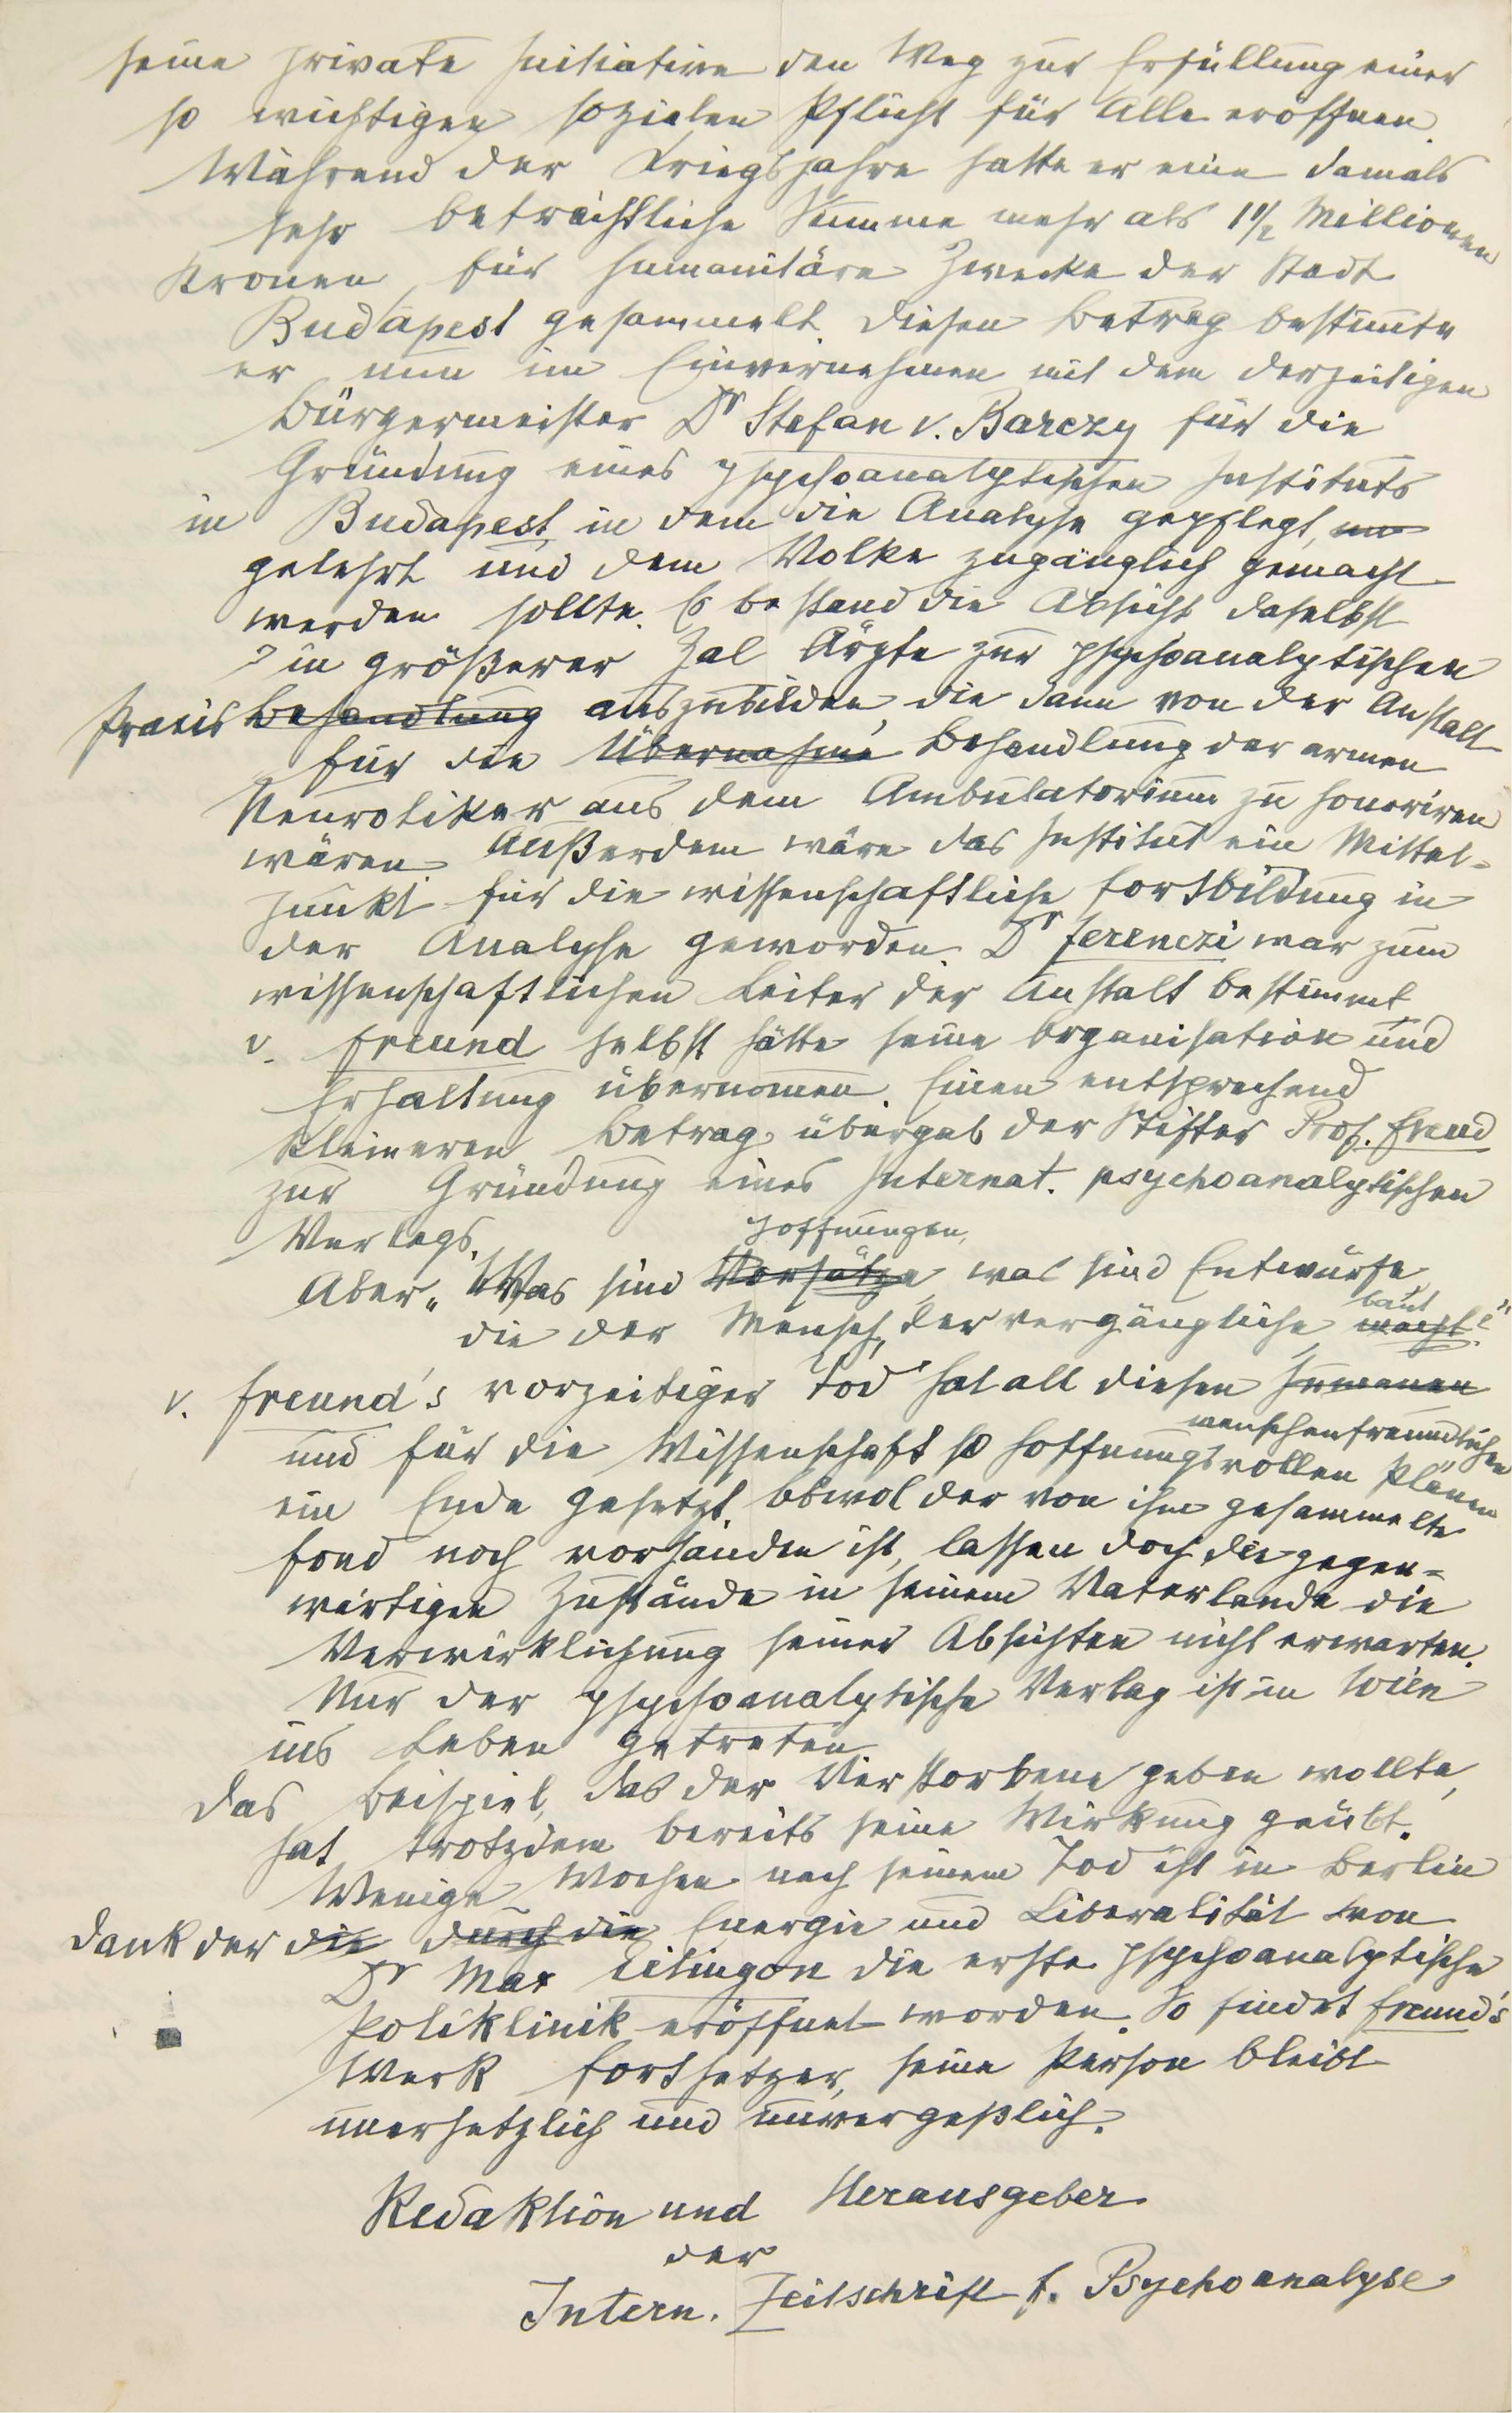 seine private Initiative den Weg zur Erfüllung einer
so wichtigen sozialen Pflicht für Alle eröffnen.
Während der Kriegsjahre hatte er eine damals
sehr beträchtliche Summe mehr als 1½ Millionen
Kronen für humanitäre Zwecke der Stadt
Budapest gesammelt. Diesen Betrag bestimmte
er nun im Einvernehmen mit dem derzeitigen
Bürgermeister Dr Stefan v. Barczy für die
Gründung eines psychoanalytischen Instituts
in Budapest, in dem die Analyse gepflegt, un
gelehrt und dem Volke zugänglich gemacht
werden sollte. Es bestand die Absicht daselbst
in größerer Zal Ärzte zur psychoanalytischen
Praxis Behandlung auszubilden, die dann von der Anstalt
für die Übernahme Behandlung der armen
Neurotiker aus dem Ambulatorium zu honoriren
wären. Außerdem wäre das Institut ein Mittel-
punkt für die wissenschaftliche Fortbildung in
der Analyse geworden. Dr Ferenczi war zum
wissenschaftlichen Leiter der Anstalt bestimmt
v. Freund selbst hätte seine Organisation und
Erhaltung übernomen. Einen entsprechend
kleineren Betrag übergab der Stifter Prof. Freud
zur Gründung eines Internat. psychoanalytischen
Verlags.
Hoffnungen,
Aber „Was sind Vorsätze, was sind Entwürfe,
baut
die der Mensch, der vergängliche, macht?"
v. Freund's vorzeitiger Tod hat all diesen humanen
menschenfreundlichen
und für die Wissenschaft so hoffnungsvollen Plänen
ein Ende gesetzt. Obwol der von ihm gesammelte
Fond noch vorhanden ist, lassen doch die gegen-
wärtigen Zustände in seinem Vaterlande die
Verwirklichung seiner Absichten nicht erwarten.
Nur der psychoanalytische Verlag ist in Wien
ins Leben getreten
Das Beispiel, das der Verstorbene geben wollte,
hat trotzdem bereits seine Wirkung geübt.
Wenige Wochen nach seinem Tod ist in Berlin
Dank der die durch die Energie und Liberalität von
Dr Max Eitingon die erste psychoanalytische
Poliklinik eröffnet worden. So findet Freund's
Werk Fortsetzer, seine Person bleibt
unersetzlich und unvergeßlich.
Redaktion und Herausgeber
der
Intern. Zeitschrift f. Psychoanalyse